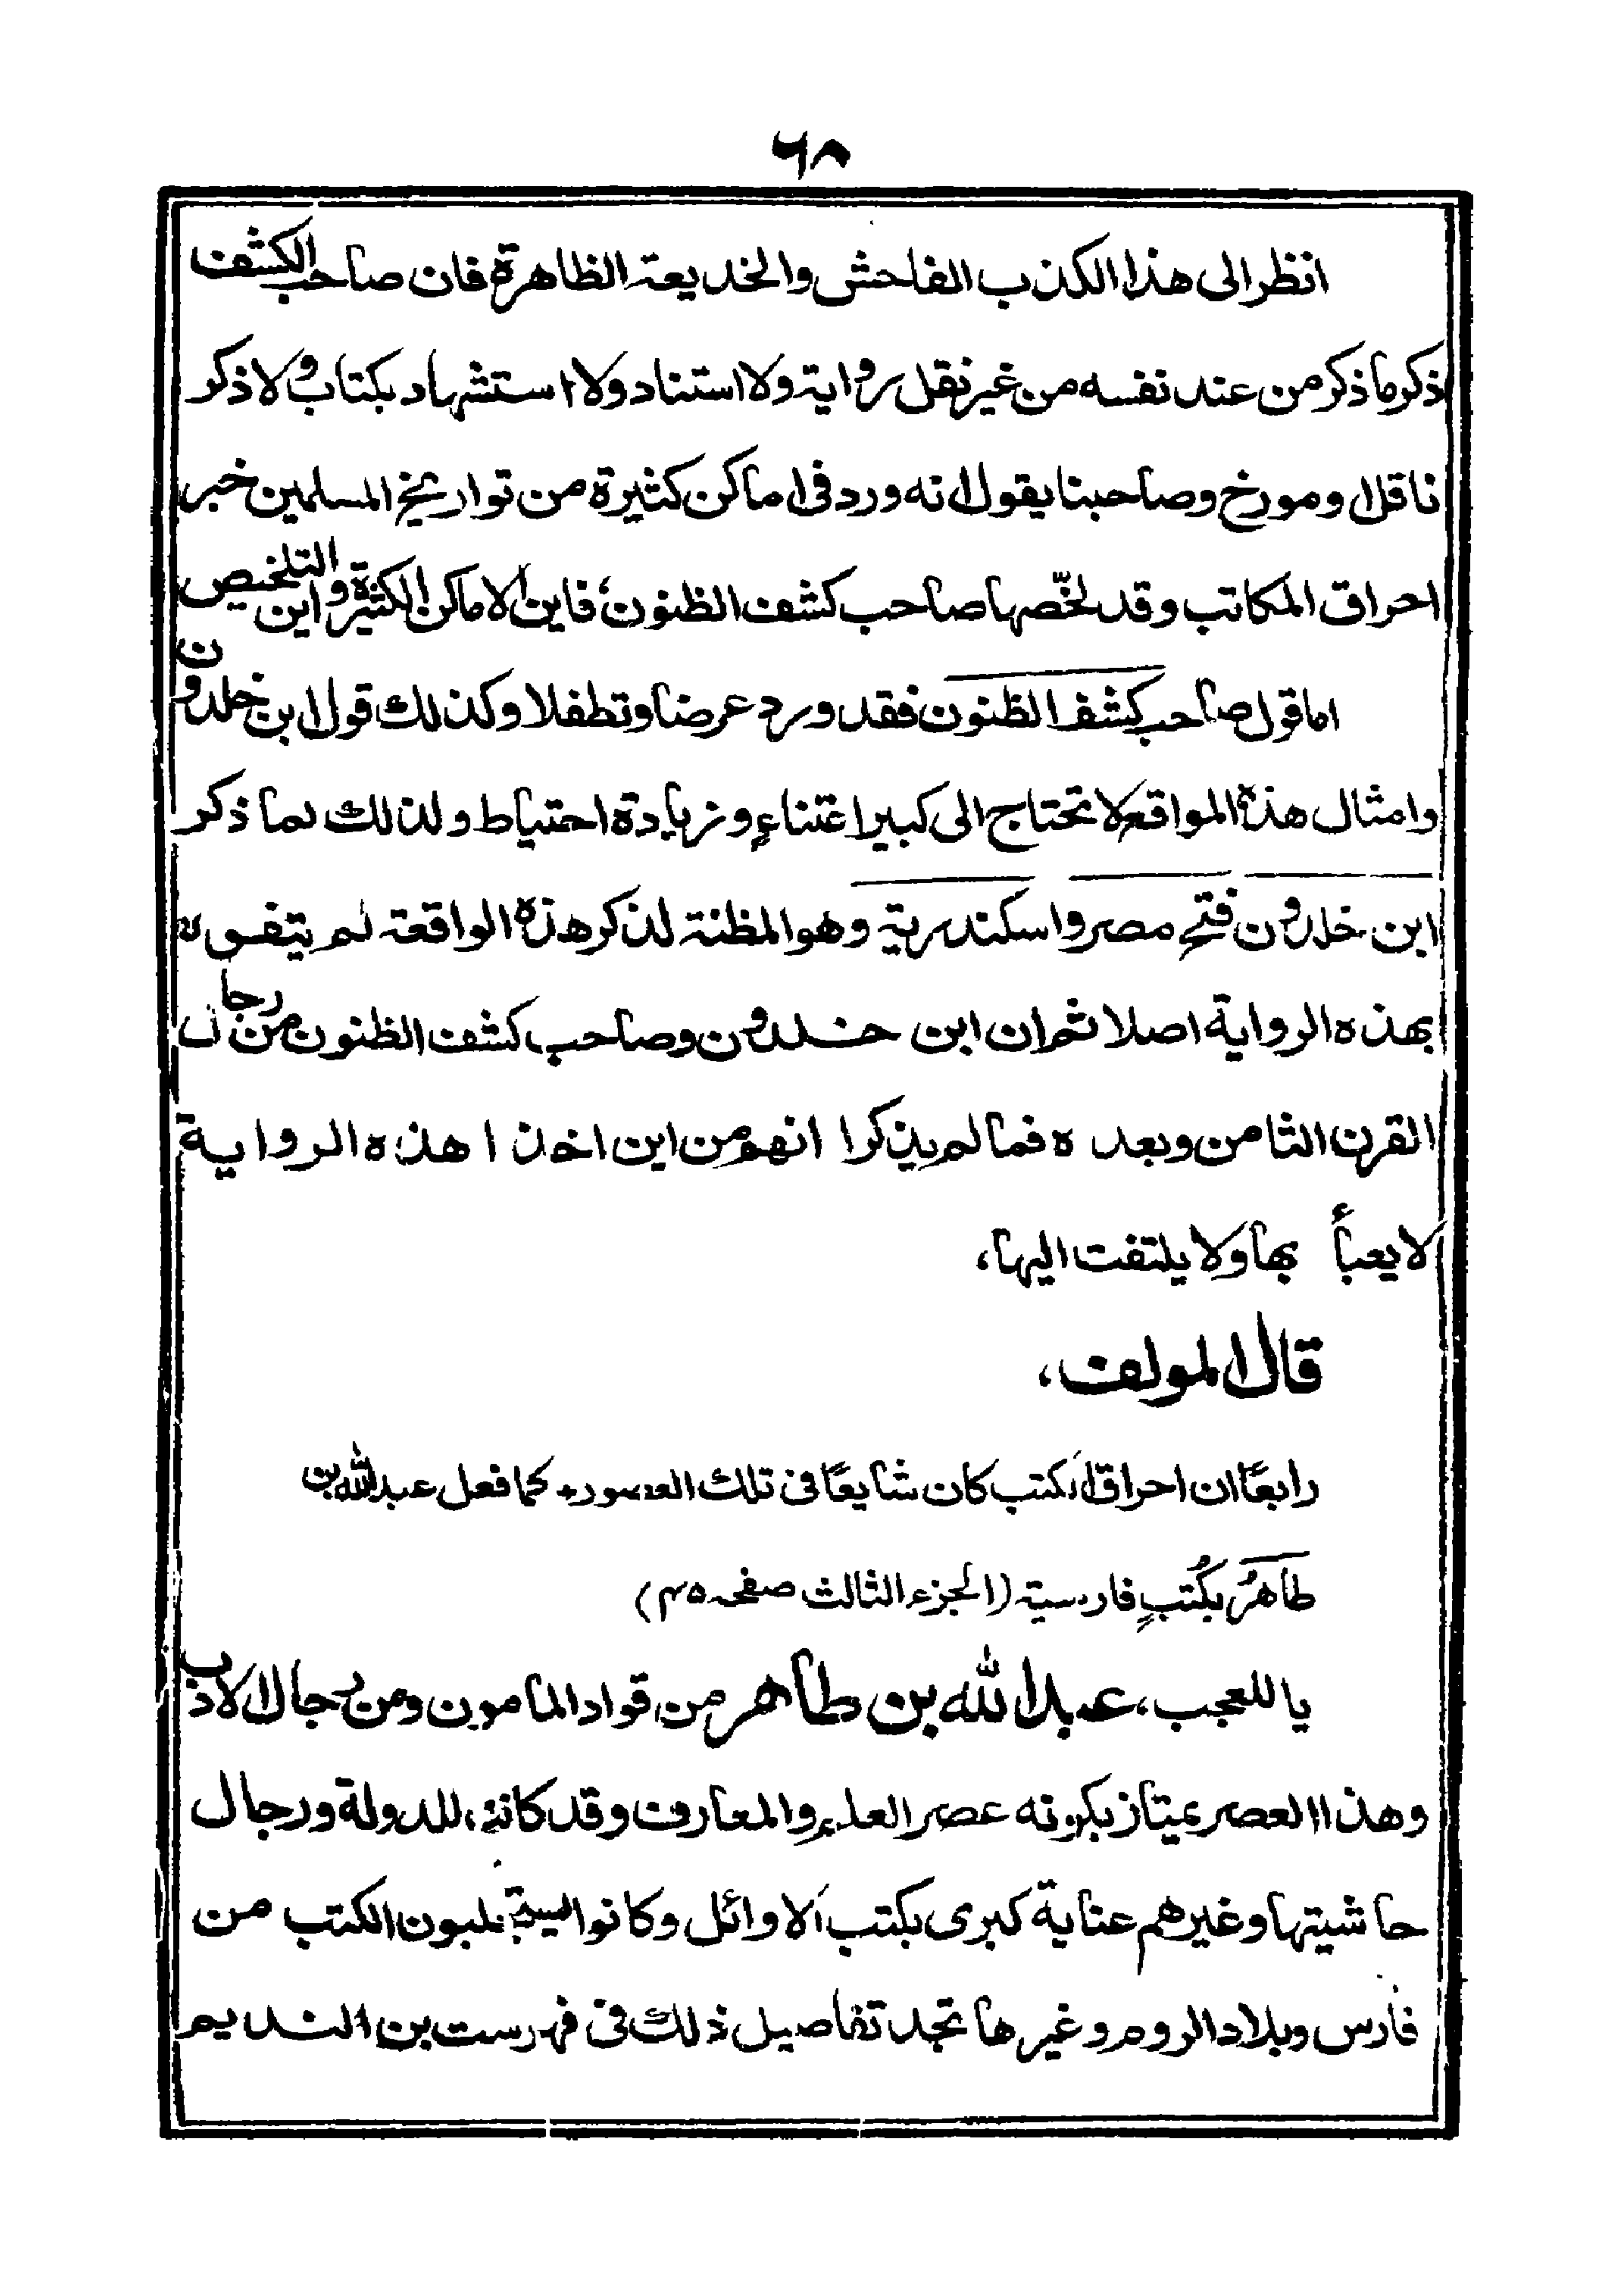 ٦٨
انظر الى هذا الكذب الفاحش والخديعة الظاهرة فان صاحب الكشف
ذكر ما ذكر من عند نفسه من غير نقل رواية ولا استناد ولا استشهاد بكتاب ولا ذكر
ناقل ومورخ وصاحبنا يقول انه ورد فى اماكن كثيرة من تواريخ المسلمين خبر
احراق المكاتب وقد لخّصها صاحب كشف الظنون، فاين الاماكن الكثيرة واين التلخيص
اما قول صاحب كشف الظنون فقد ورد عرضا وتطفلا وكذلك قول ابن خلدون
وامثال هذه المواقع لا تحتاج الى كبير اعتناءٍ وزيادة احتياط ولذلك لما ذكر
ابن خلدون فتح مصر واسكندرية وهو المظنة لذكر هذه الواقعة لم يتفوه
بهذه الرواية اصلا ثم ان ابن خلدون وصاحب كشف الظنون من رجال
القرن الثامن وبعده فما لم يذكرا انهم من اين اخذا هذه الرواية
لا يعبأ بها ولا يلتفت اليها،
قال المولف،
رابعًا ان احراق الكتب كان شايعًا فى تلك العصور، كما فعل عبد الله بن
طاهرُ بكُتبٍ فارسية (الجزء الثالث صفحه ٤٥)
يا للعجب، عبد الله بن طاهر من قواد المامون ومن رجال الادب
وهذا العصر يمتاز بكونه عصر العلم والمعارف وقد كانت، للدولة ورجال
حاشيتها وغيرهم عناية كبرى بكتب الاوائل وكانوا يستجلبون الكتب من
فارس وبلاد الروم وغيرها تجد تفاصيل ذلك فى فهرست بن النديم